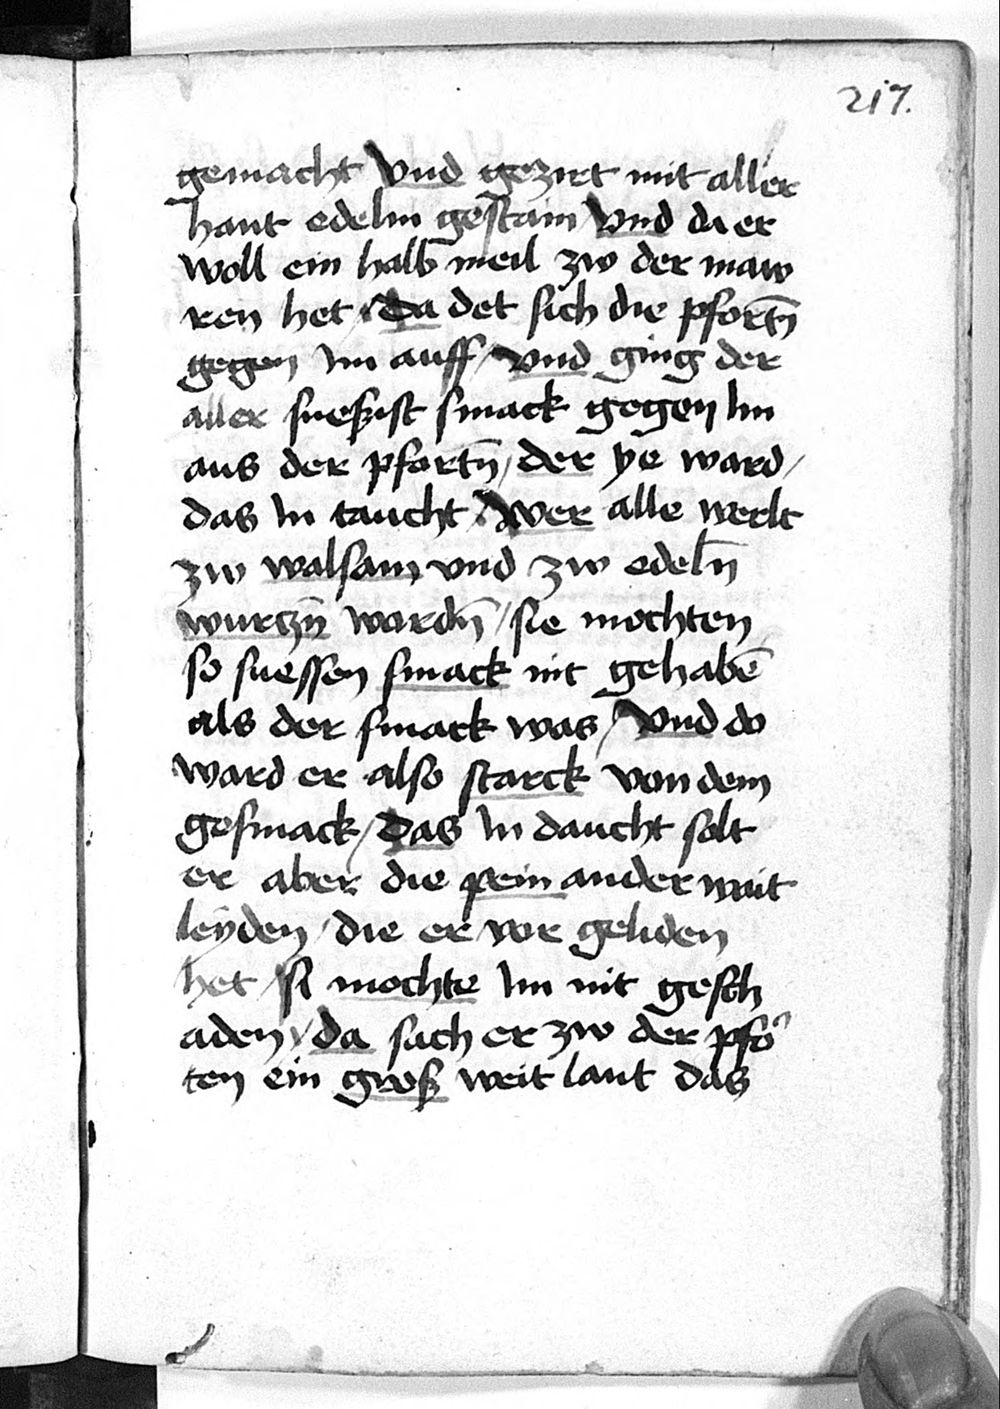 217.
gemacht Vnd gezirt mit aller
hant edelm gestain / Vnd da er
woll ein halb meil zw der maw
ren het / Da det sich die pfortn̄
gegen Im auff / Vnd ging der
aller suessist smack gegen Im
aus der pfortn̄ / der ye ward /
das In taucht / Wer alle werlt
zw walsam vnd zw edeln̄
wurczn̄ wordn̄ / sie mochten
so suessen smack nit gehabē
als der smack was / Vnd do
ward er also starck von dem
gesmack / Das In daucht solt
er aber die pein ander wait
leyden / die er vor geliden
het / si mochte Im nit gesch
aden / da sach er zw der pfo᷑
ten ein groß weit lant das